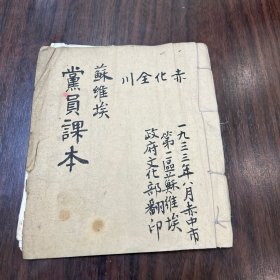 赤化全川
蘇維埃
黨員課本
一九三三年八月赤中市
第一區蘇維埃
政府文化部翻印